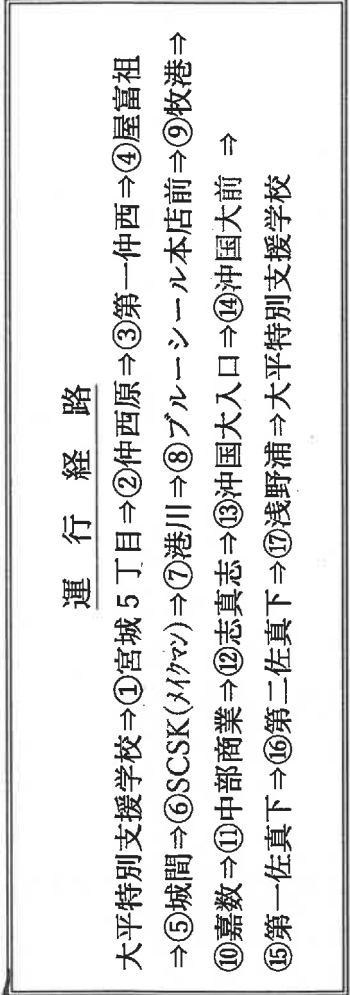 運行経路
大平特別支援学校⇒①宮城5丁目⇒②仲西原⇒③第一仲西⇒④屋富祖
⇒⑤城間⇒⑥SCSK(メイクマン)⇒⑦港川⇒⑧ブルーシール本店前⇒⑨牧港⇒
⑩嘉数⇒⑪中部商業⇒⑫志真志⇒⑬沖国大入口⇒⑭沖国大前 ⇒
⑮第一佐真下⇒⑯第二佐真下⇒⑰浅野浦⇒大平特別支援学校